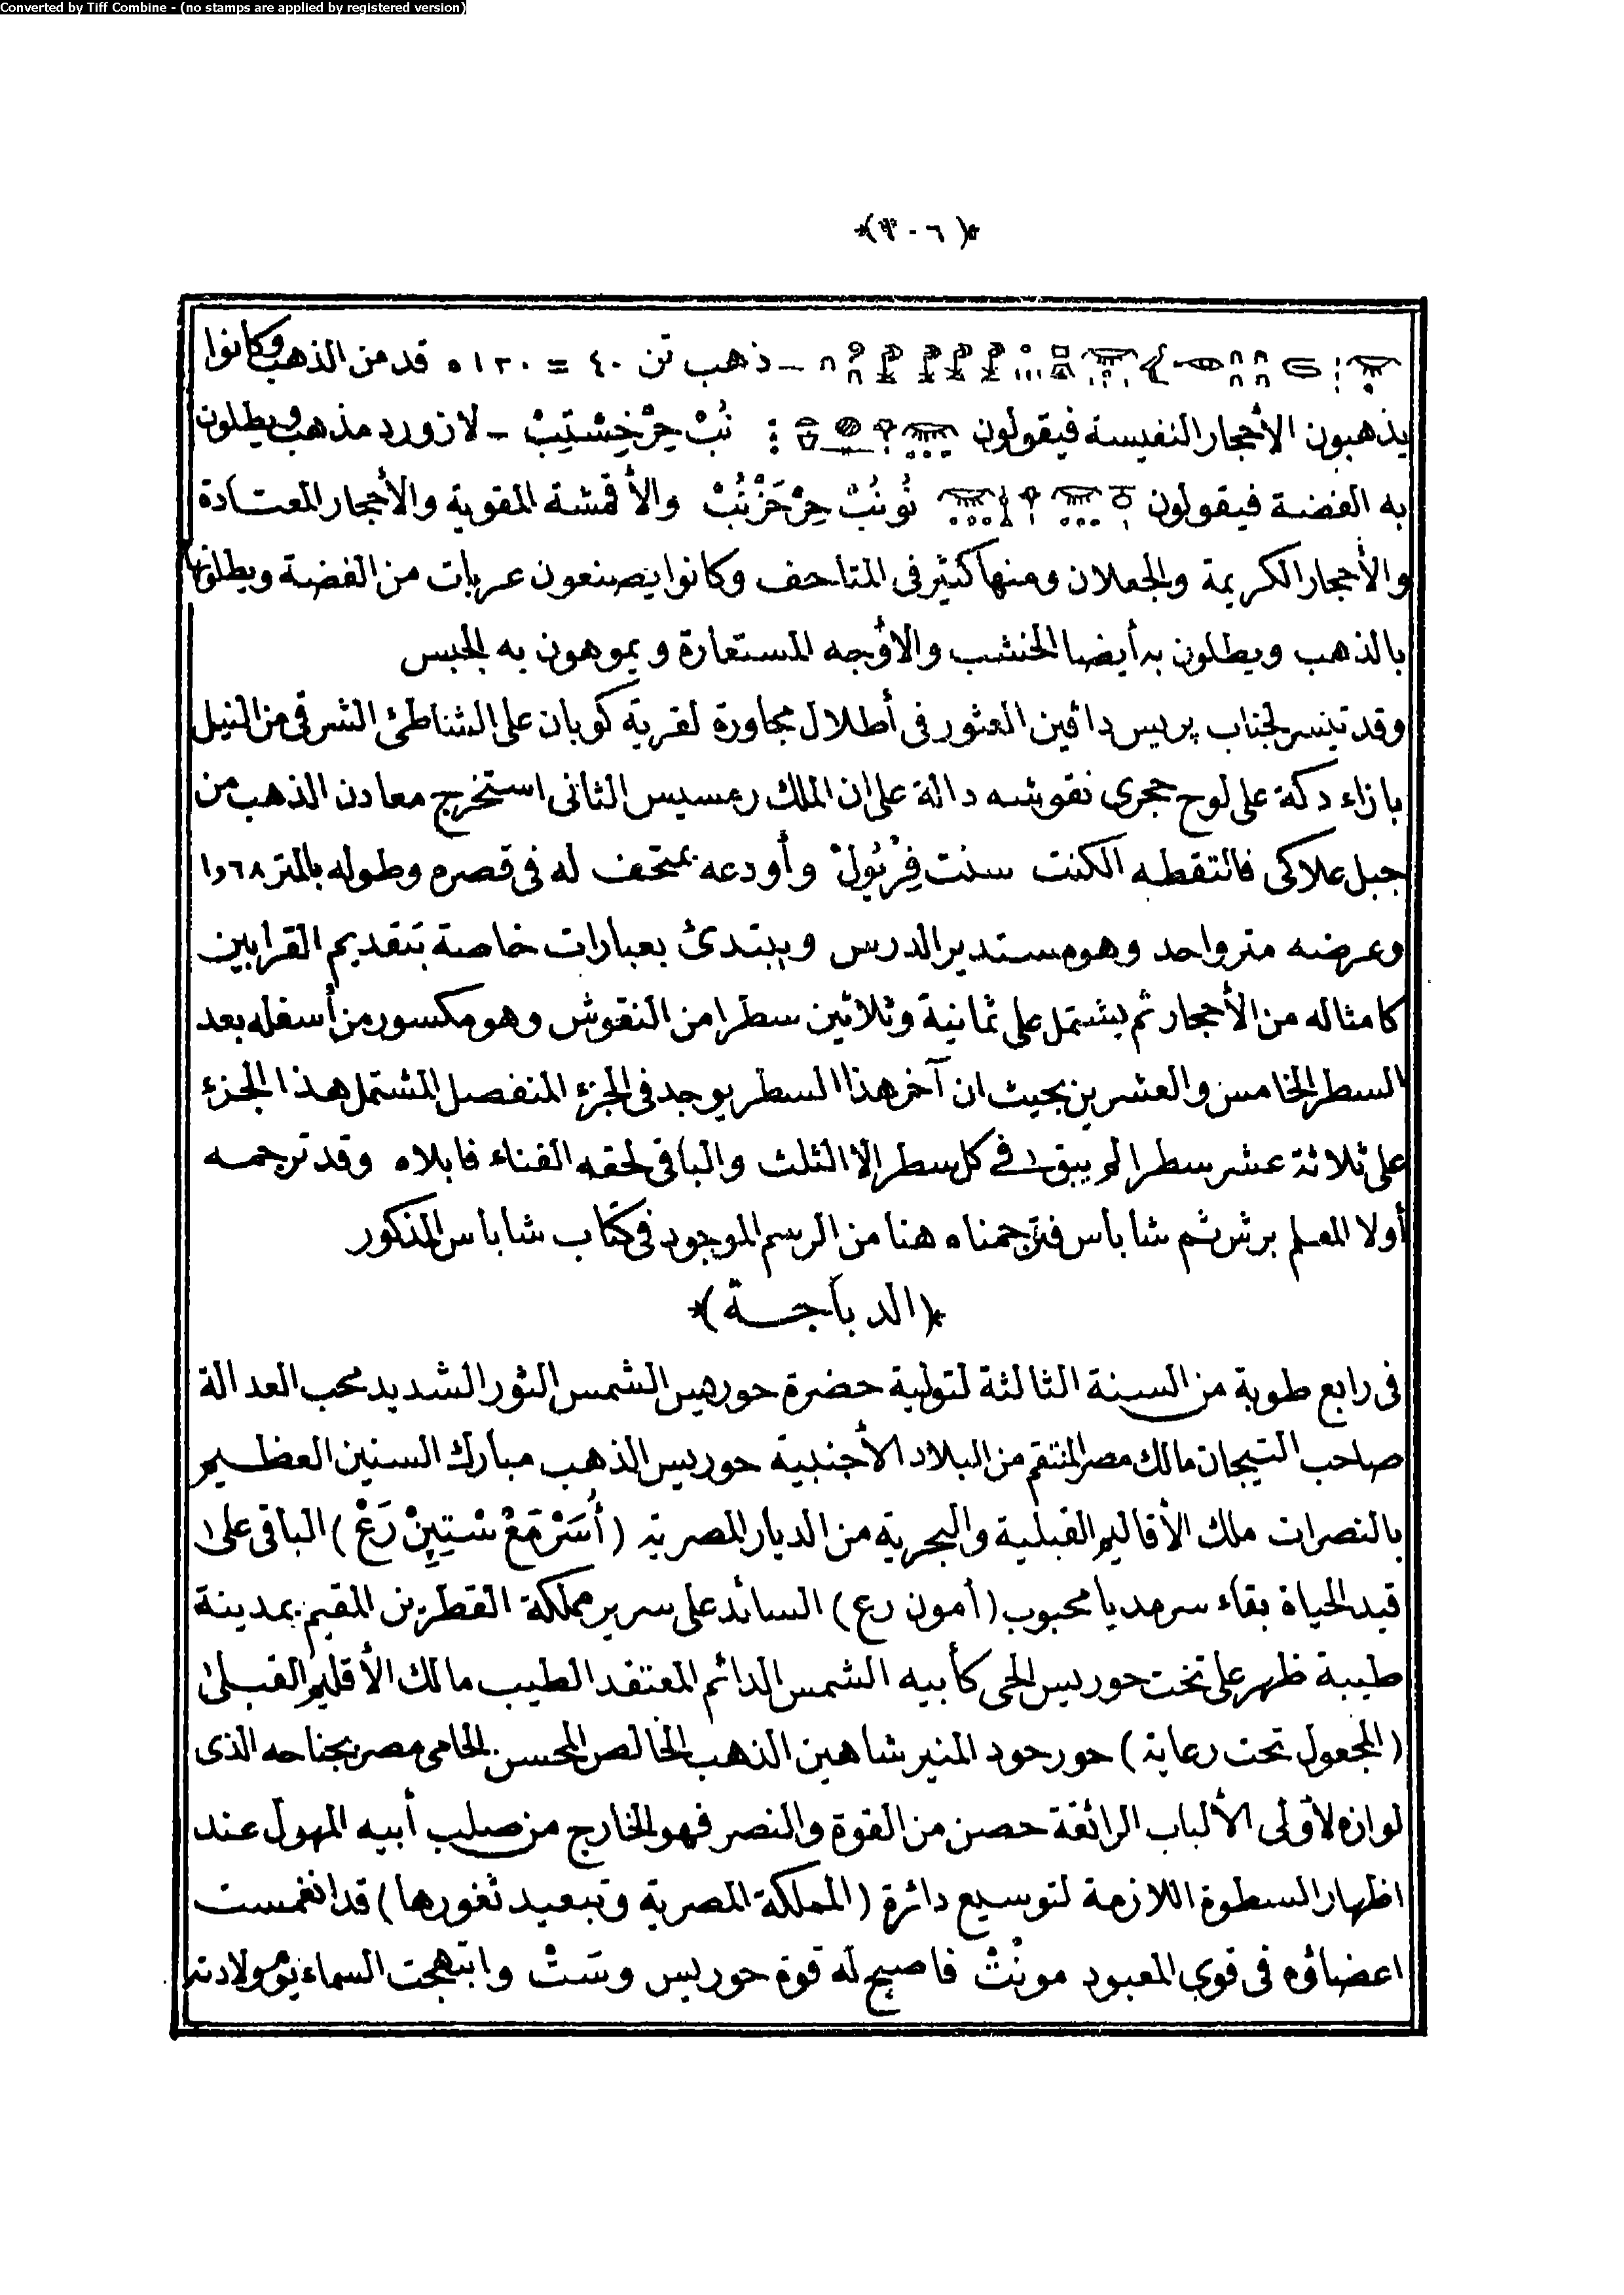 Converted by Tiff Combine - (no stamps are applied by registered version)
*(٣٠٦)*
ـ ذهب تن ٤٠ = ٥١٢٠ قد من الذهب وكانوا
يذهبون الأحجار النفيسة فيقولون نُبْ حِرْ خِسْتِبْ ـ لازورد مذهب ويطلون
به الفضة فيقولون نُو نُبْ حِرْ حَزْ نُبْ والأقمشة المقوية والأحجار المعتادة
والأحجار الكريمة والجعلان ومنها كثير فى المتاحف وكانوا يصنعون عربات من الفضة ويطلونها
بالذهب ويطلون به أيضا الخشب والاوجه المستعارة ويموهون به الجبس
وقد تيسر لجناب پريس داڤين العثور فى أطلال مجاورة لقرية كوبان على الشاطئ الشرقى من النيل
بازاء دكة على لوح حجرى نقوشه دالة على ان الملك رعمسيس الثانى استخرج معادن الذهب من
جبل علاكى فالتقطه الكنت سنت فِرْيُولْ وأودعه بمتحف له فى قصره وطوله بالمتر ١٫٦٨
وعرضه متر واحد وهو مستدير الدرس ويبتدئ بعبارات خاصة بتقديم القرابين
كامثاله من الأحجار ثم يشتمل على ثمانية وثلاثين سطرا من النقوش وهو مكسور من أسفله بعد
السطر الخامس والعشرين بحيث ان آخر هذا السطر يوجد فى الجزء المنفصل المشتمل هذا الجزء
على ثلاثة عشر سطرا لم يبق فى كل سطر الا الثلث والباقى لحقه الفناء فابلاه وقد ترجمه
أولا المعلم برش ثم شاباس فترجمناه هنا من الرسم الموجود فى كتاب شاباس المذكور
*(الديباجة)*
فى رابع طوبة من السنة الثالثة لتولية حضرة حورهيس الشمس الثور الشديد محب العدالة
صاحب التيجان مالك مصر المنتقم من البلاد الأجنبية حوريس الذهب مبارك السنين العظيم
بالنصرات ملك الأقاليم القبلية والبحرية من الديار المصرية (أُسَرْ مَعْ سْتِپِنْ رَعْ) الباقى على
قيد الحياة بقاء سرمديا محبوب (أمون رع) السائد على سرير مملكة القطرين المقيم بمدينة
طيبة ظهر على تخت حوريس الحى كأبيه الشمس الدائم المعتقد الطيب مالك الأقليم القبلى
(المجعول تحت رعاية) حور حود المنير شاهين الذهب الخالص المحسن الحامى مصر بجناحه الذى
لوازه لأولى الألباب الرائقة حصن من القوة والنصر فهو الخارج من صلب أبيه المهول عند
اظهار السطوة اللازمة لتوسيع دائرة (المملكة المصرية وتبعيد ثغورها) قد انغمست
اعضاؤه فى قوى المعبود مونْتْ فاصبح له قوة حوريس وسَتْ وابتهجت السماء يوم ولادته